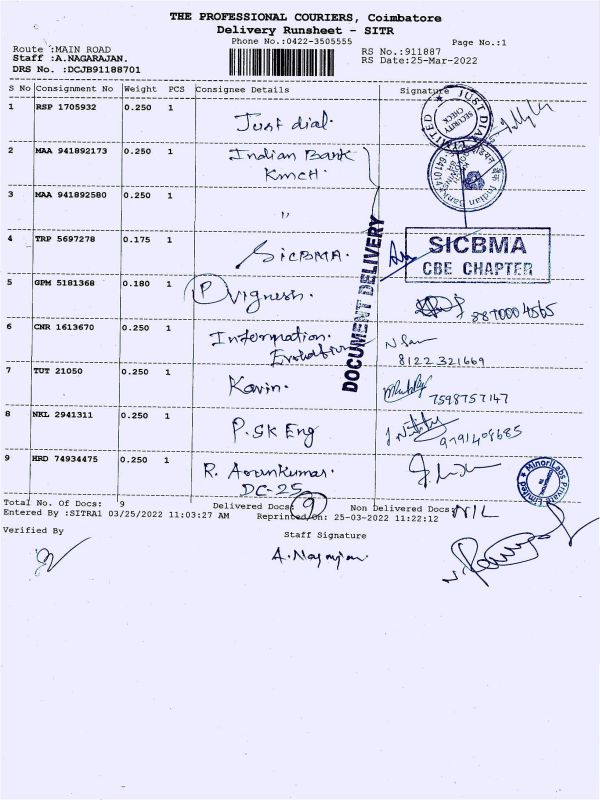 THE PROFESSIONAL COURIERS, Coimbatore
Delivery Runsheet - SITR
Phone No.:0422-3505555
Page No.:1
Route :MAIN ROAD
RS No.:911887
Staff :A.NAGARAJAN.
RS Date:25-Mar-2022
DRS No. :DCJB91188701
S No Consignment No Weight PCS Consignee Details Signature
1 RSP 1705932 0.250 1 Just dial.
JUST DIAL LIMITED
SECURITY CHECK
2 MAA 941892173 0.250 1 Indian Bank
KMCH.
Indian Bank
641014
3 MAA 941892580 0.250 1 "
4 TRP 5697278 0.175 1 SICBMA.
SICBMA
CBE CHAPTER
DOCUMENT DELIVERY
5 GPM 5181368 0.180 1 P Vignesh.
8870004565
6 CNR 1613670 0.250 1 Information.
8122 321669
7 TUT 21050 0.250 1 Kavin.
7598757147
8 NKL 2941311 0.250 1 P.SK Eng
9791409685
9 HRD 74934475 0.250 1 R. Arunkumar.
DC-25
MinoriLabs Private Limited
Total No. of Docs: 9 Delivered Docs: 9 Non Delivered Docs: NIL
Entered By :SITRA1 03/25/2022 11:03:27 AM Reprinted On: 25-03-2022 11:22:12
Verified By Staff Signature
A. Nagarajan.